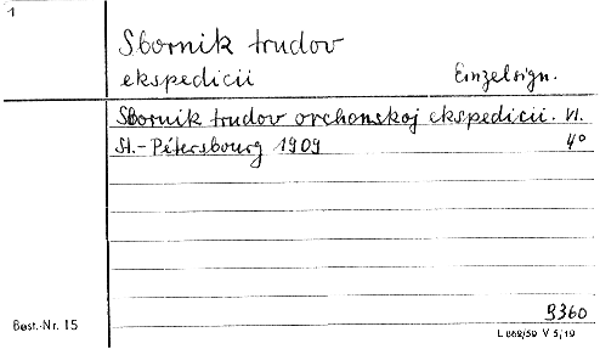 1
Sbornik trudov
ekspedicii Einzelsign.
Sbornik trudov orchonskoj ekspedicii. VI.
St.-Pétersbourg 1909 4°
3360
Best.-Nr. 15
L 868/59 V 5/19